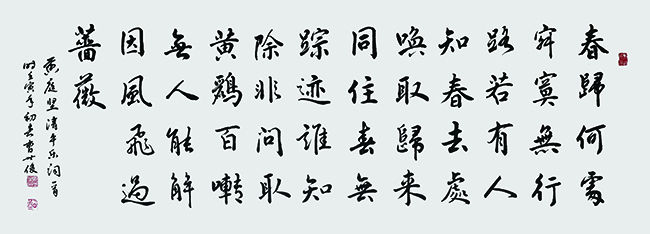 春歸何處
寂寞無行
路若有人
知春去處
喚取歸來
同住春無
踪迹誰知
除非問取
黃鸝百囀
無人能解
因風飛過
薔薇
黄庭堅清平乐词一首
時壬寅年初春曹